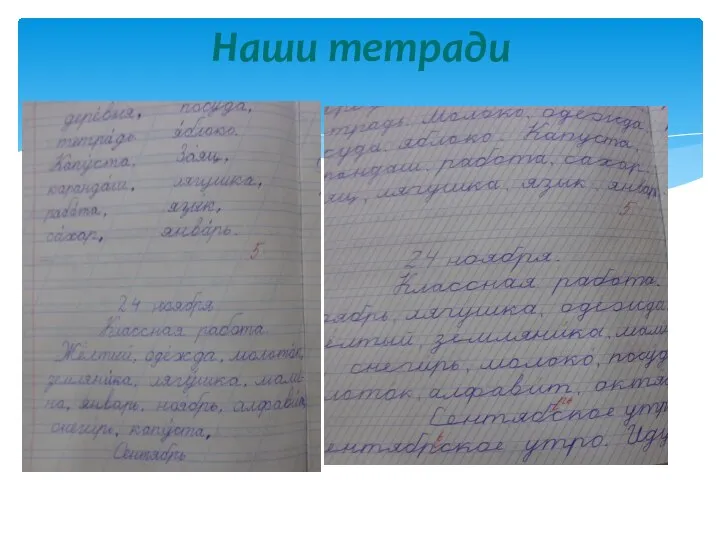 Наши тетради
деревня, посуда,
тетрадь яблоко.
Капуста. Заяц,
карандаш, лягушка,
работа, язык,
сахар, январь.
5
24 ноября
Классная работа
Жёлтый, одежда, молоток,
земляника, лягушка, маши-
на, январь, ноябрь, алфавит,
снегирь, капуста,
Сентябрь
традь. Молоко, одежда,
суда, яблоко. Капуста,
рандаш, работа, сахар.
яц, лягушка, язык, январь.
5
24 ноября.
Классная работа.
ябрь, лягушка, одежда
елтый, земляника, маши
снегирь, молоко, посуд
лоток, алфавит, октя
Сентябрское утр
ентябрьское утро. Иду